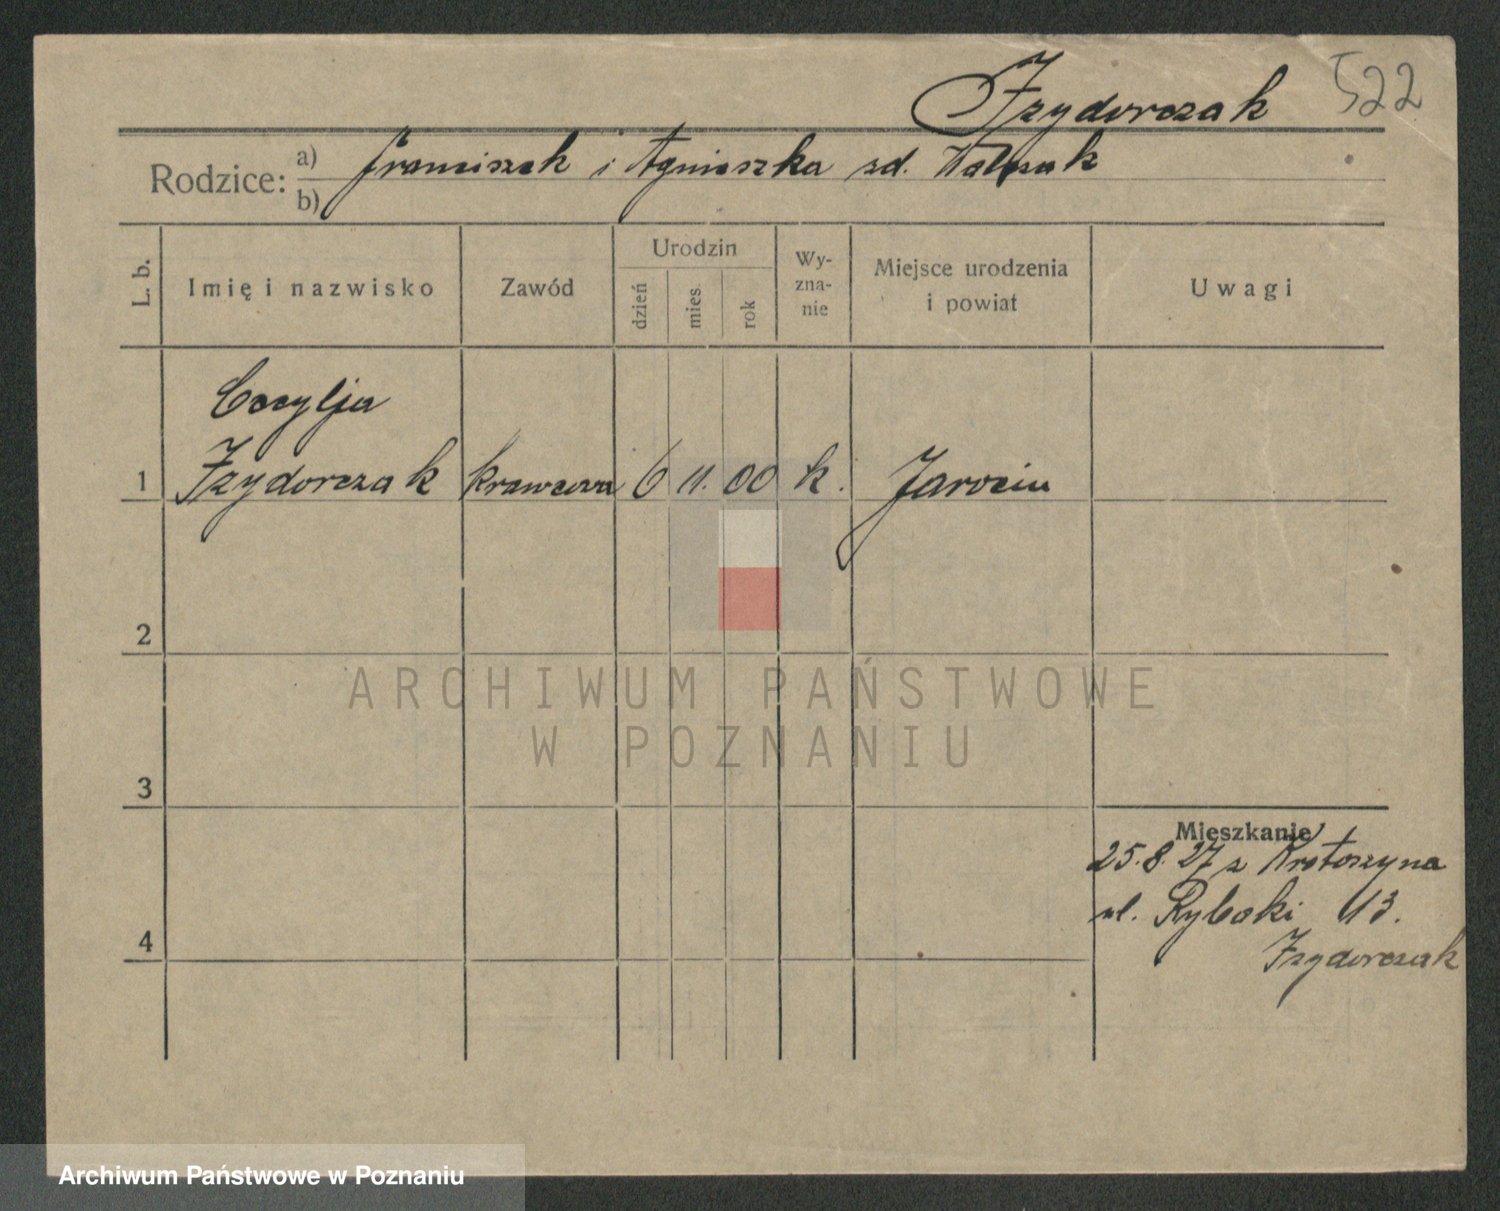 Izydorczak 522
Rodzice: a) Franciszek i Agnieszka zd. Walczak
b)
L. b. Imię i nazwisko Zawód Urodzin dzień mies. rok Wy-zna-nie Miejsce urodzenia i powiat Uwagi
Cecylja
1 Izydorczak krawcowa 6 11. 00 k. Jarocin
2
ARCHIWUM PAŃSTWOWE
W POZNANIU
3
Mieszkanie
25.8.27 z Krotoszyna
ul. Rybaki 13.
4
Izydorczak
Archiwum Państwowe w Poznaniu